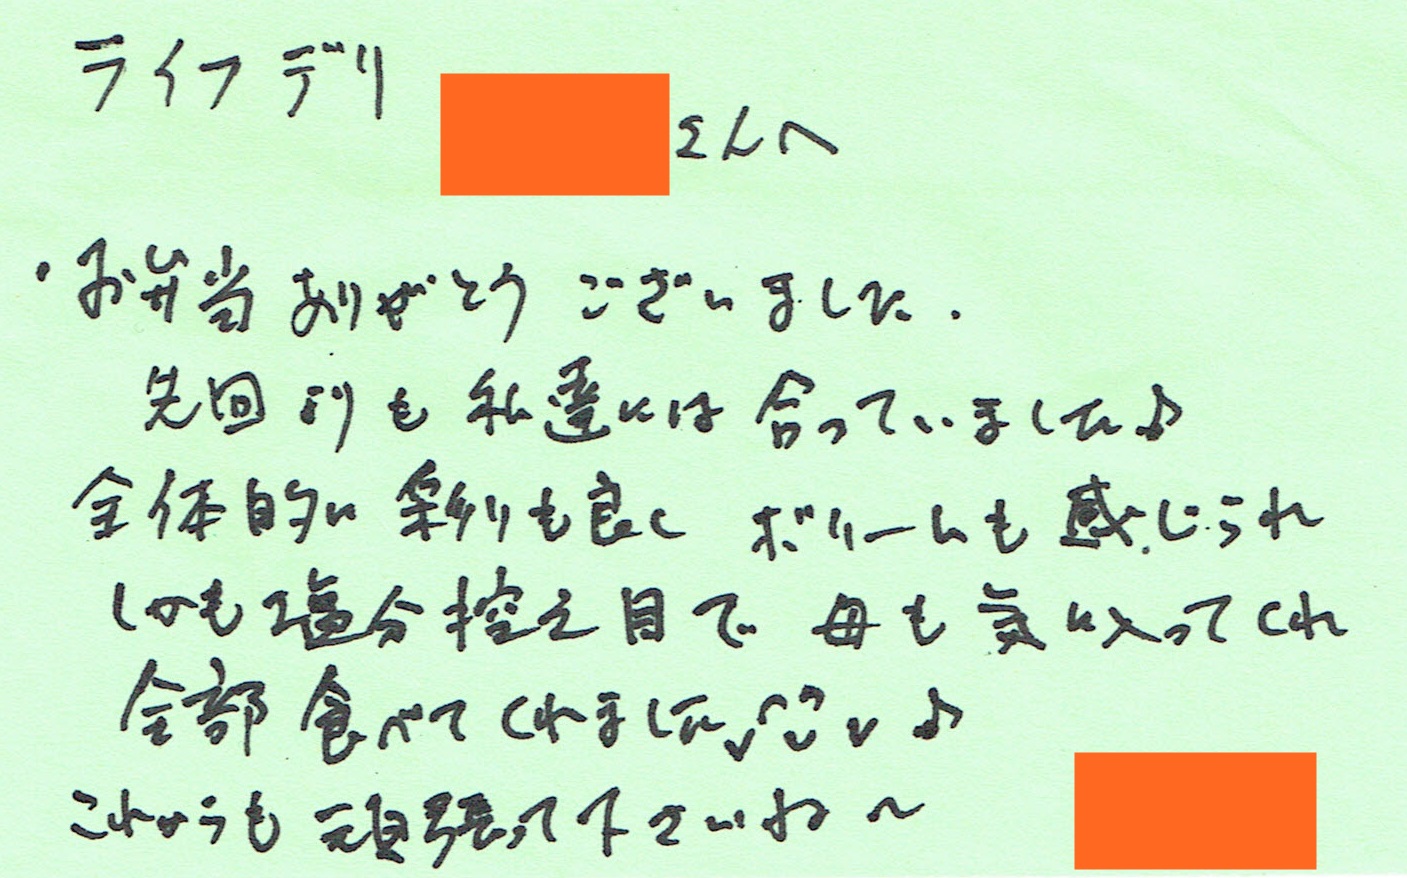 ライフデリ
さんへ
・お弁当ありがとうございました.
先回よりも私達には合っていました♪
全体的に彩りも良く ボリームも感じられ
しかも塩分控え目で 母も気に入ってくれ
全部食べてくれました♪
これからも頑張って下さいね〜